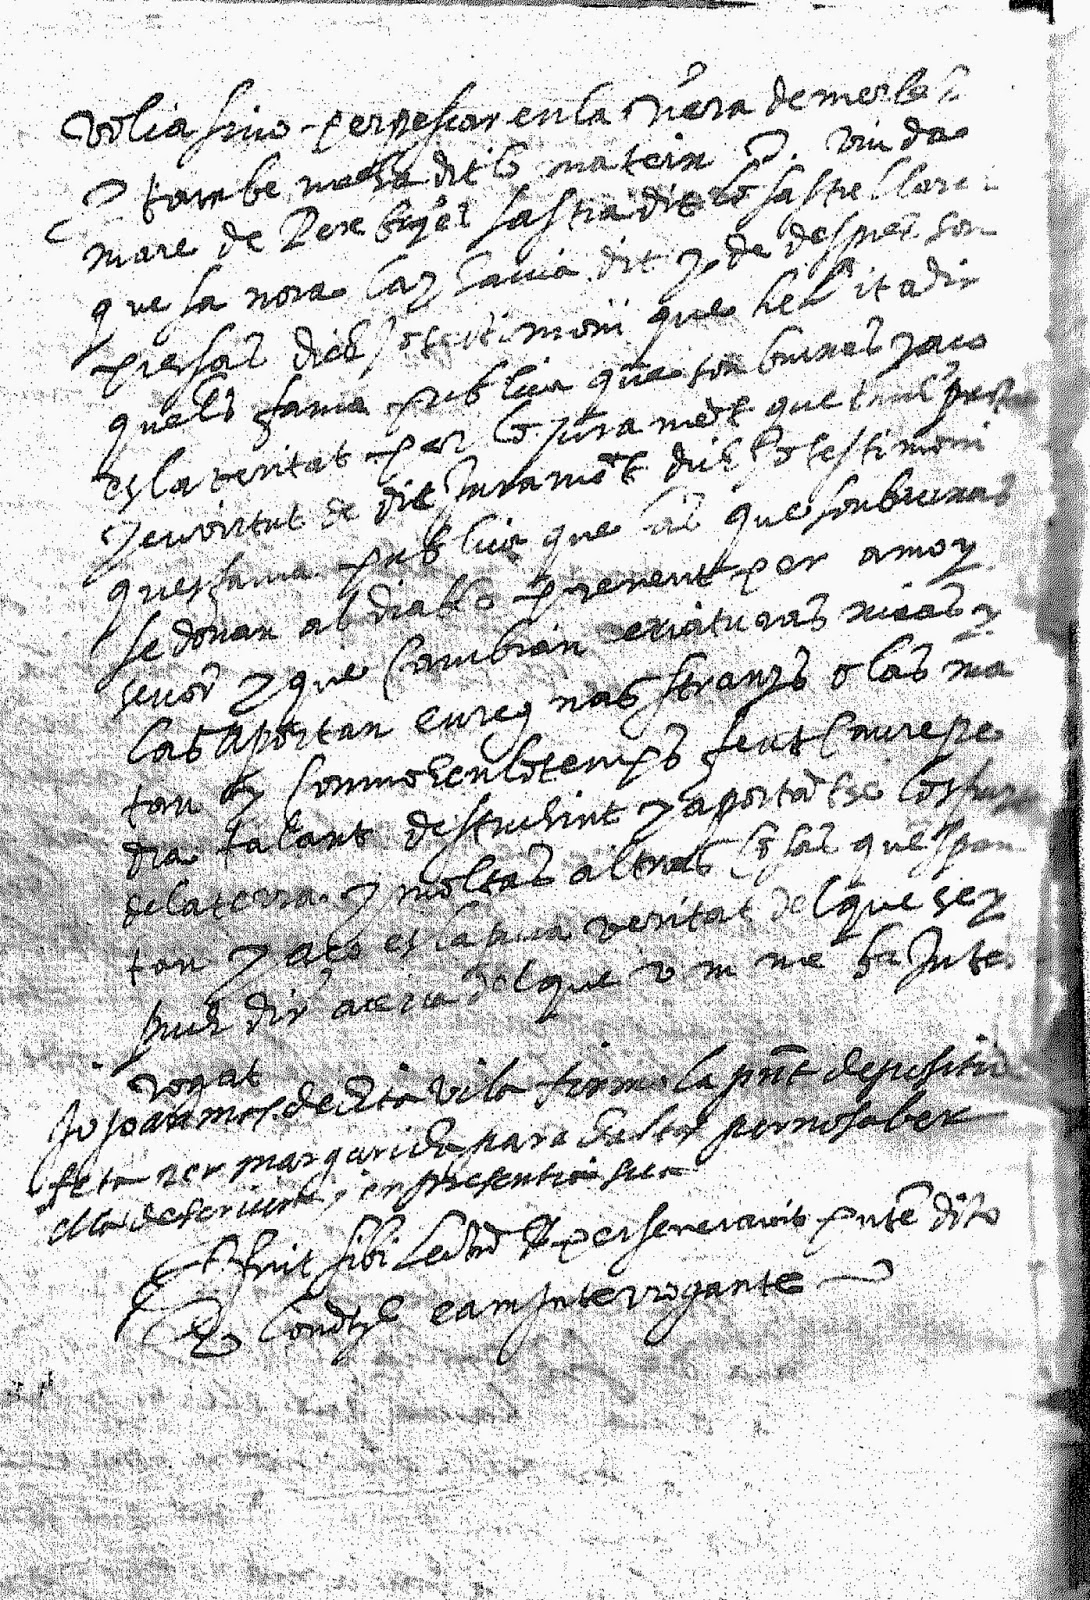 volia sino per pescar en la riera de merles
y tambe me ha dit lo mateix viuda
mare de Pere sastra dit lo sastre
que sa nora lay havia dit y de despres son
presas dich jo testimoni que he sentit a dir
quels fama publica que son bruxes y aco
es la veritat per lo jurament que tinch prestat
y en virtut de dit jurament dich jo testimoni
ques fama publica que las que son bruxas
se donan al diable prenent per amo y
senor y que cambian criaturas xicas y
las aportan en regnas stranys o las ma
tan y commohen lo temps fent caure pe
dra talant destruhint y aportantsen los fruits
de la terra y moltas altras cosas ques pon
tan y aco es la pura veritat del que se y
puch dir acerca del que v m me ha inte
rogat
Jo Joan mas de dita vila firmo la pnt depositio
feta per margarida per no saber
ella de scriurer y en presentia sua
fuit sibi lecta et perseveravit pnte dicto
eam interrogante